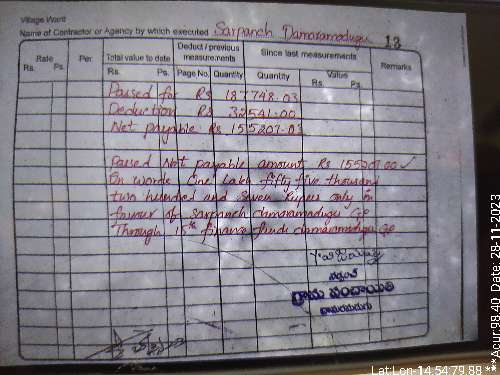 Village Ward
Name of Contractor or Agency by which executed Sarpanch Damaramadugu 13
Rate Per Total value to date Deduct / previous measurements Since last measurements Remarks
Rs. Ps. Rs. Ps. Page No. Quantity Quantity Value Rs. Ps.
Passed for Rs 187748.03
Deduction Rs 32541.00
Net payable Rs 155207.03
Passed Net payable amount Rs 155207.00
One Lakh fifty five thousand
two hundred and seven Rupees only in
favour of sarpanch GP
Through 15th finance funds GP
సర్పంచ్
గ్రామ పంచాయితి
దామరమడుగు
Lat Lon-14.54:79.88 ***Acur-98.40 Date: 28-11-2023